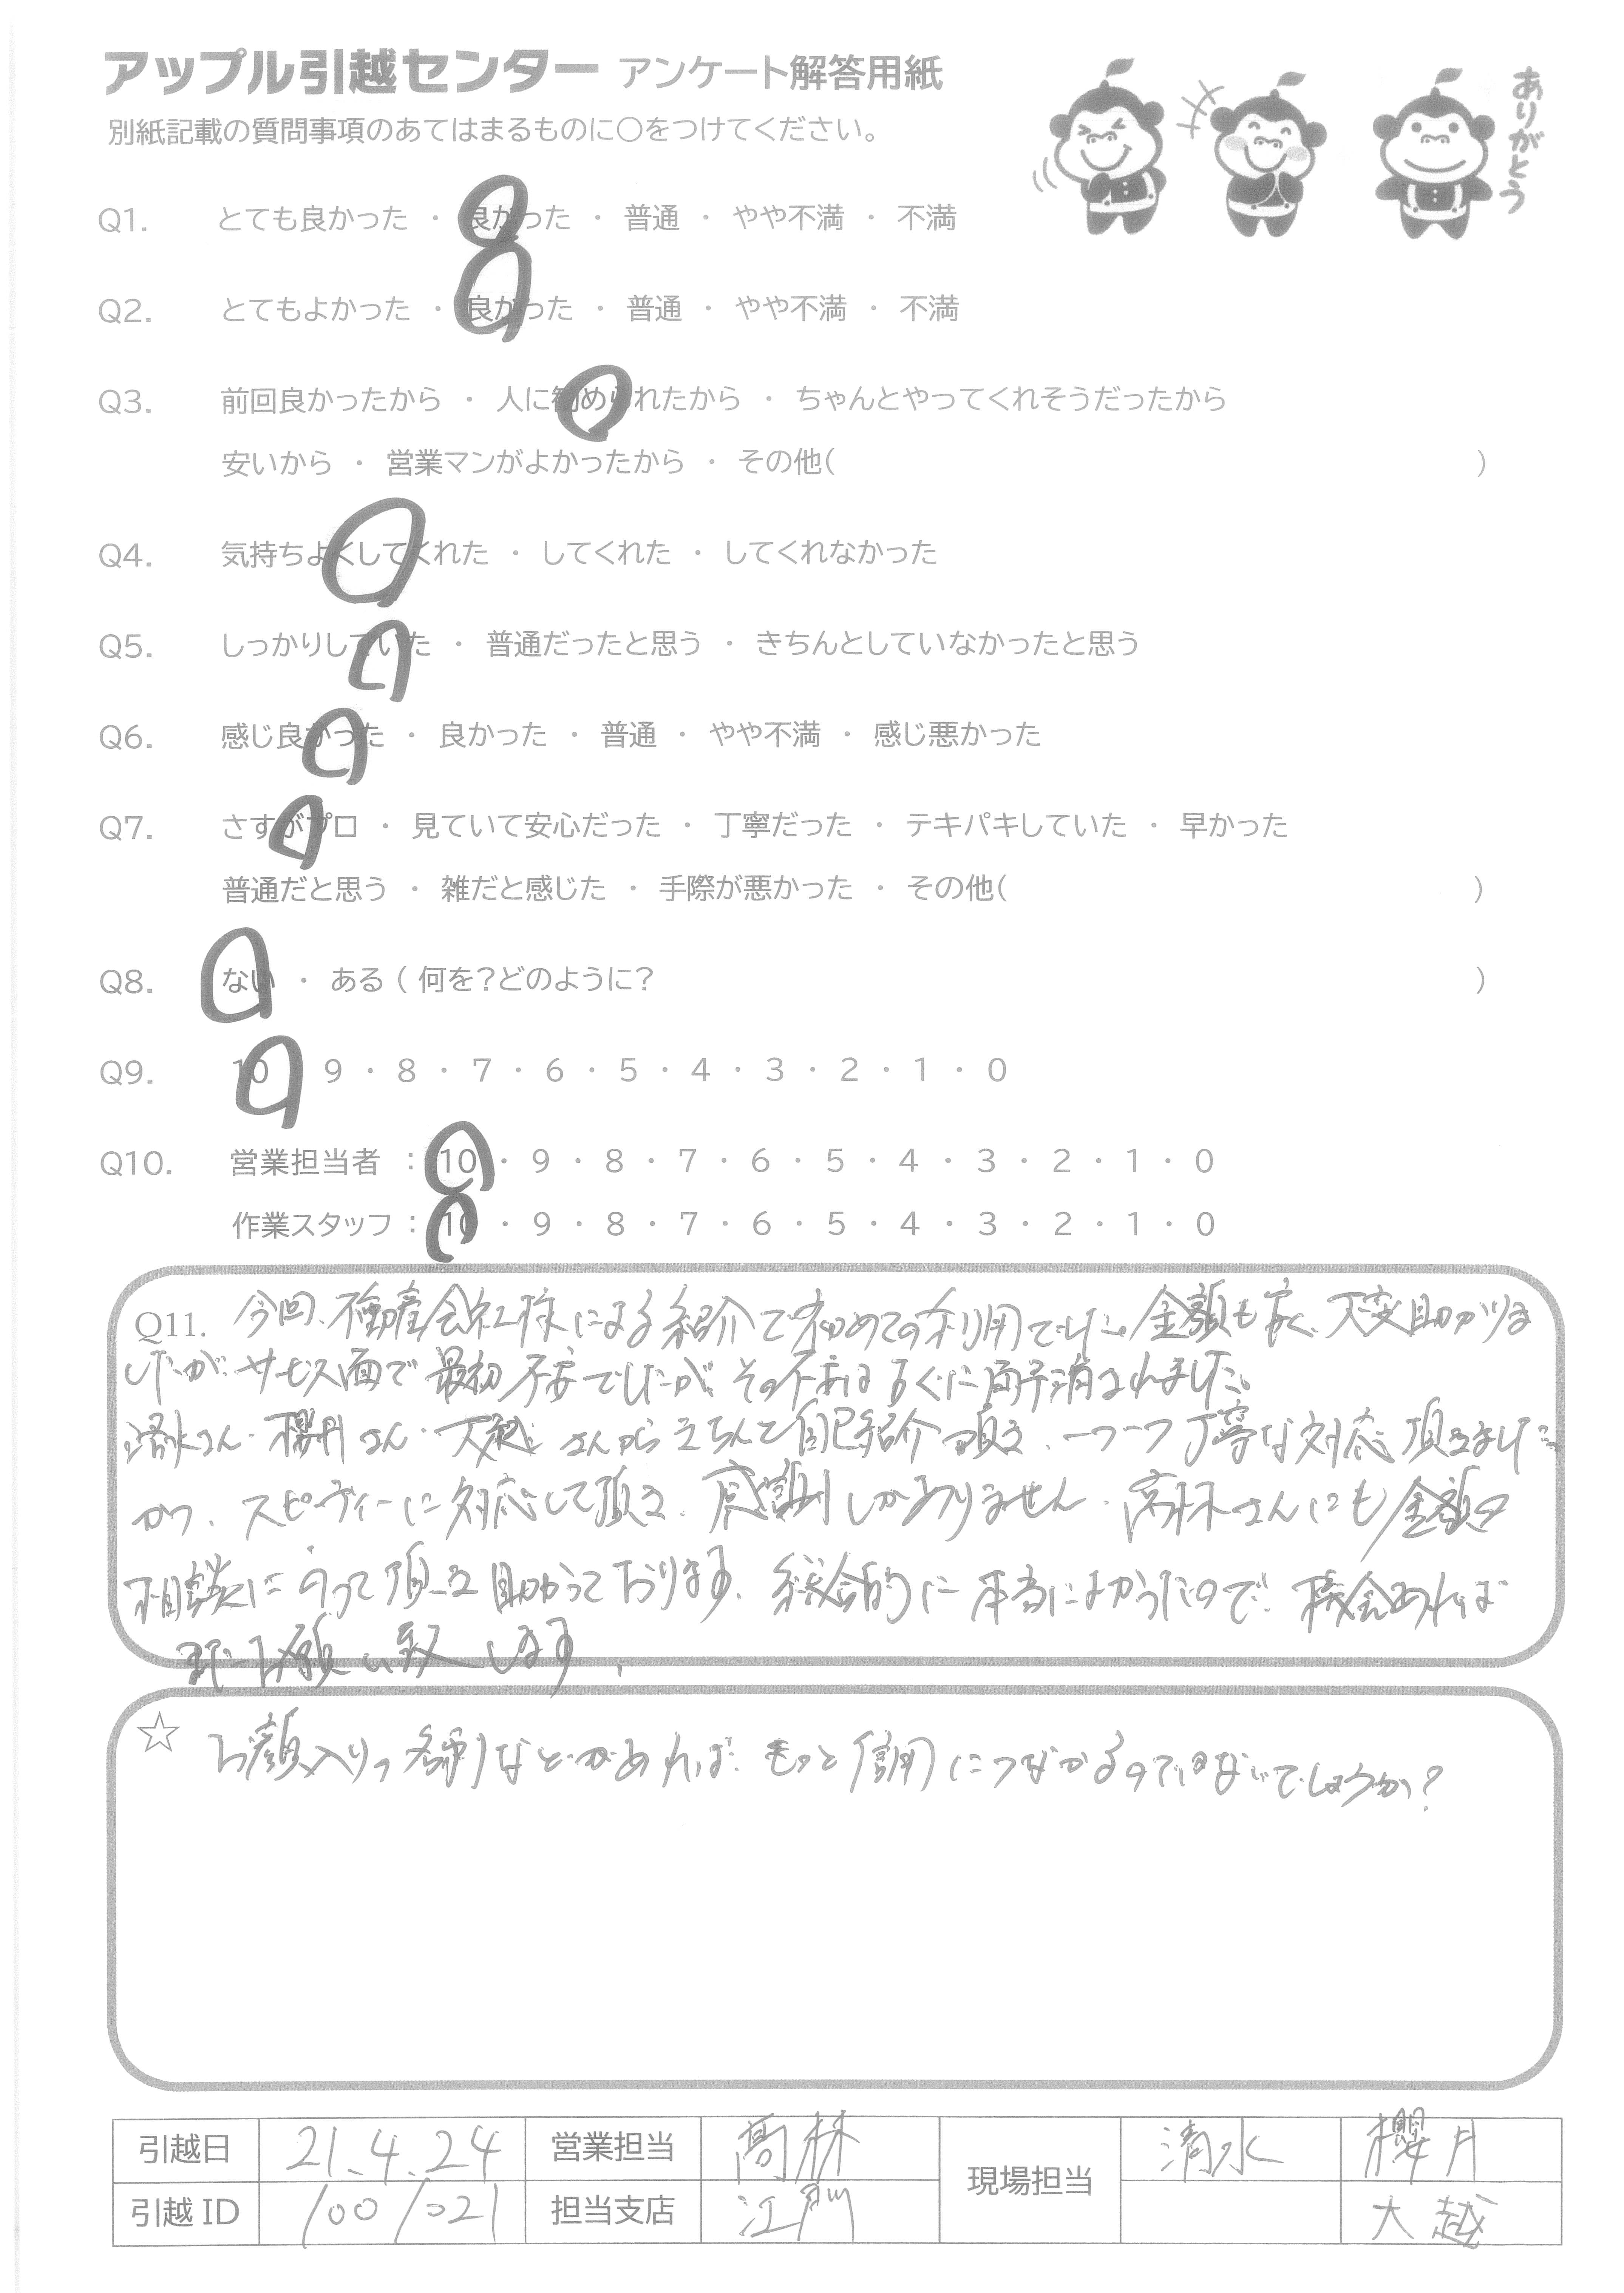 アップル引越センター アンケート解答用紙
別紙記載の質問事項のあてはまるものに○をつけてください。
ありがとう
Q1. とても良かった ・ 良かった ・ 普通 ・ やや不満 ・ 不満
Q2. とてもよかった ・ 良かった ・ 普通 ・ やや不満 ・ 不満
Q3. 前回良かったから ・ 人に勧められたから ・ ちゃんとやってくれそうだったから
安いから ・ 営業マンがよかったから ・ その他( )
Q4. 気持ちよくしてくれた ・ してくれた ・ してくれなかった
Q5. しっかりしていた ・ 普通だったと思う ・ きちんとしていなかったと思う
Q6. 感じ良かった ・ 良かった ・ 普通 ・ やや不満 ・ 感じ悪かった
Q7. さすがプロ ・ 見ていて安心だった ・ 丁寧だった ・ テキパキしていた ・ 早かった
普通だと思う ・ 雑だと感じた ・ 手際が悪かった ・ その他( )
Q8. ない ・ ある ( 何を?どのように? )
Q9. 10 9 ・ 8 ・ 7 ・ 6 ・ 5 ・ 4 ・ 3 ・ 2 ・ 1 ・ 0
Q10. 営業担当者 : 10 ・ 9 ・ 8 ・ 7 ・ 6 ・ 5 ・ 4 ・ 3 ・ 2 ・ 1 ・ 0
作業スタッフ : 10 ・ 9 ・ 8 ・ 7 ・ 6 ・ 5 ・ 4 ・ 3 ・ 2 ・ 1 ・ 0
Q11. 今回、不動産会社様による紹介で初めての利用でした。金額も安く、大変助かりま
したが、サービス面で最初不安でしたが、その不安はすぐに解消されました。
清水さん・櫻井さん・大越さんからきちんと自己紹介頂き、一つ一つ丁寧な対応頂きました。
かつ、スピーディーに対応して頂き、感謝しかありません。高林さんにも金額の
相談にのって頂き助かっております。総合的に本当によかったので、機会あれば
また お願い致します。
☆ お顔入りの名刺などがあれば、もっと信用につながるのではないでしょうか?
引越日 21.4.24 営業担当 高林 現場担当 清水 櫻井
引越 ID 1001021 担当支店 江戸川 大越